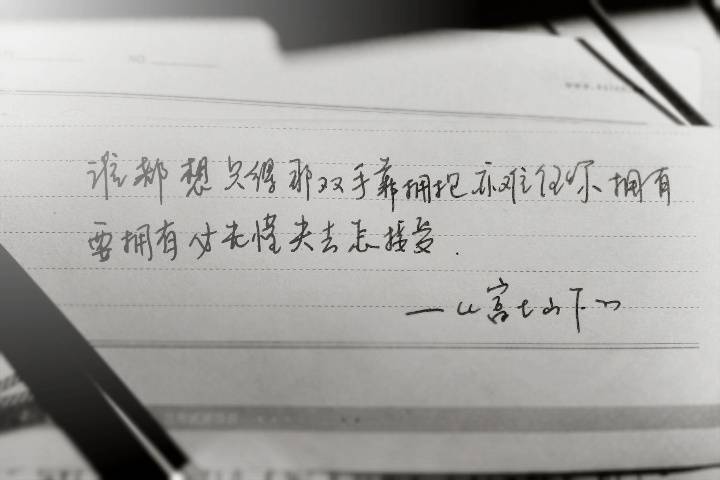 NO
www.
谁都想只得那双手靠拥抱亦难任你拥有
要拥有必先懂失去怎接受.
—《富士山下》